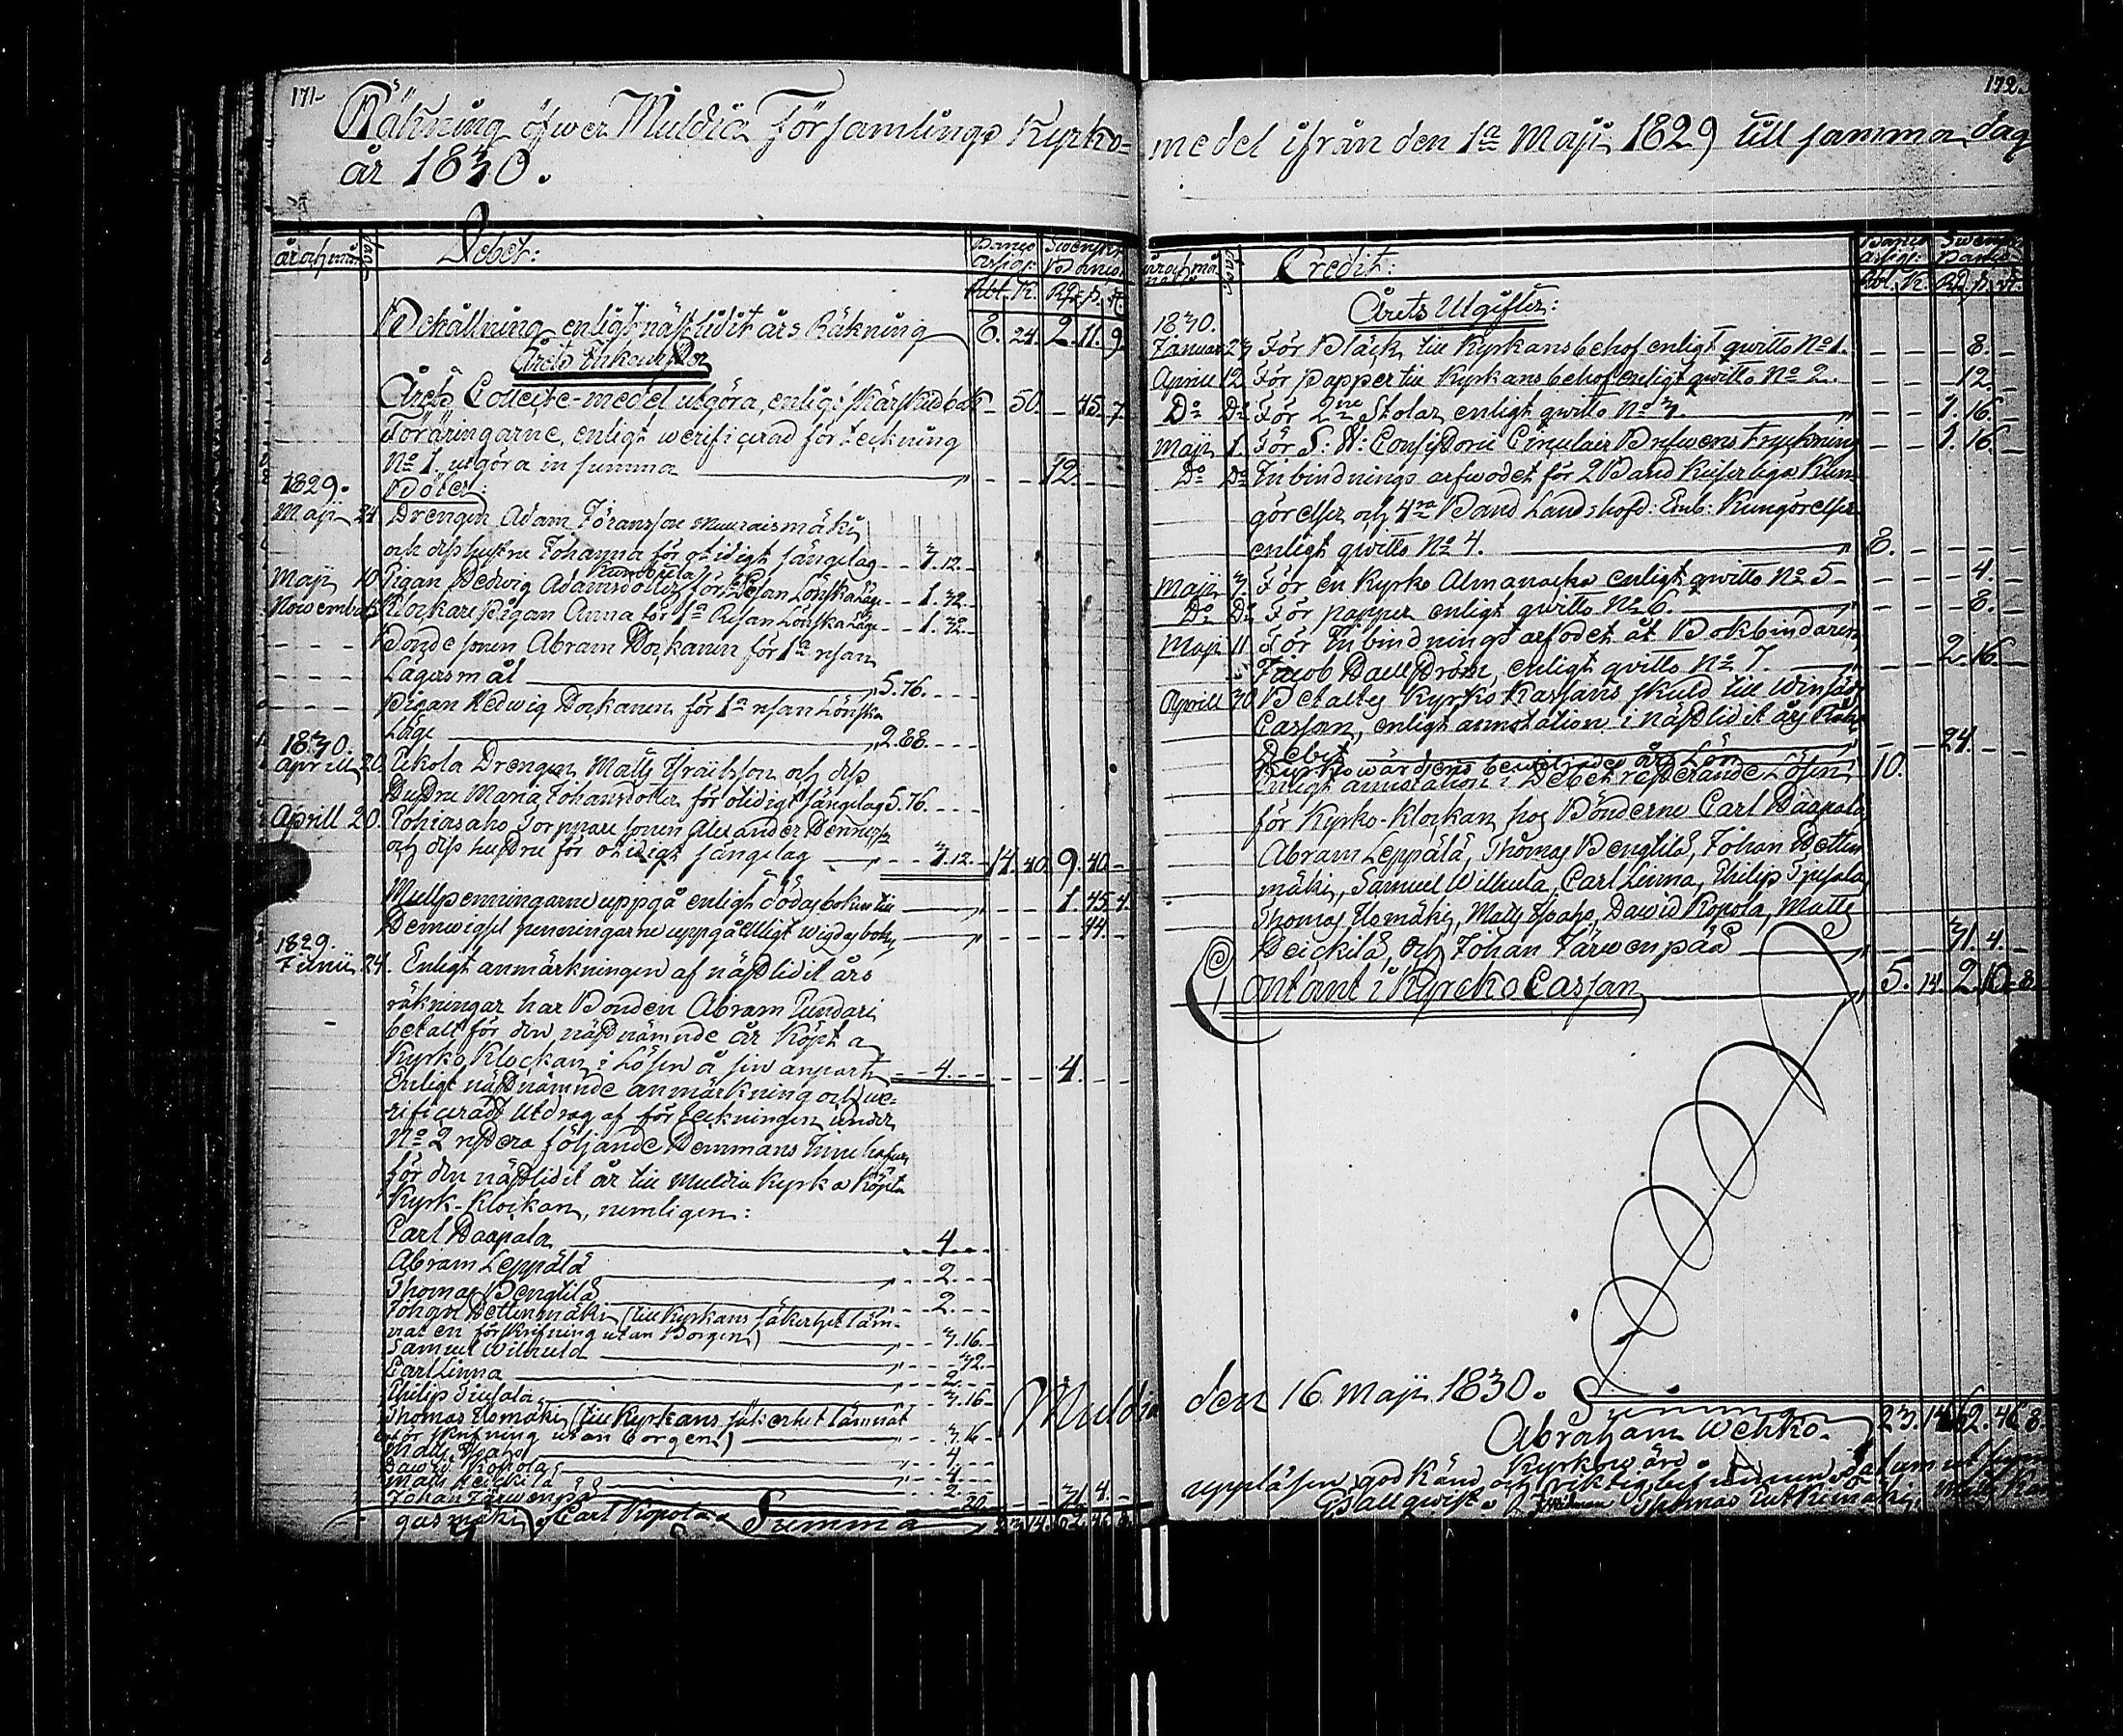 171.
Räkning öfwer Muldia Församlings Kyrko-
år 1830.
år och mån
Debet:
Banco assign:
Swenskt Banco
Rbl. K. Rd. s. rst.
Behållning enligt näst lidit års Räkning 8. 24. 2. 11. 9.
Årets Inkomster
Årets Collecte-medel utgöra, enligt särskild bok - 50. - 45. 7.
Föräringarne, enligt werificerad förteckning
No 1. utgöra in summa - - 12. - -
1829. Böter:
Maji 24 Drengen Adam Jöransson Muuraismäki
och dess hustru Johanna för otidigt sängelag - - 3. 12.
Maji 10 Pigan Hedwig Adamsdotter för 1a Resan Lönskaläge - - 1. 32.
November Klockare pigan Anna för 1a Resan Lönskaläge - - 1. 32.
- - - Bonde sonen Abram Hockanen för 1a resan
Lägersmål 5. 76. - - -
- - - Pigan Hedwig Hockanen för 1a resan Lönska
Läge 2. 88. - - -
1830.
Aprill 20. Ukola Drengen Matts Israelsson och dess
Hustru Maria Johansdotter för otidigt sängelag 5. 76. - - -
Aprill 20. Torppare sonen Alexander
och dess hustru för otidigt sängelag - - 3. 12. - 14. 40. 9. 40. -
Mullpenningarne uppgå enligt dödaboken till - - 1. 45. 4.
Hemwigsel penningarne uppgå enligt wigdaboken - - - 44. -
1829.
Junii 24. Enligt anmärkningen af näst lidit års
räkningar har Bonden Abram Pundari
betalt för den näst nämnde år köpta
Kyrko Klockan i Lösen å sin anpart - - 4. - - - - - 4. - -
Enligt näst nämnde anmärkning och we-
rificeradt Utdrag af förteckningen under
No 2 restera följande Hemmans Innehafware
för den näst lidit år till Muldia Kyrka köpta
Kyrk-Klockan, nemligen:
Carl Haapala 4. - -
Abram Leppälä - - 2. - -
Thomas Bengtilä - - 2. - -
Johan Hettenmäki (till Kyrkans säkerhet läm-
nat en förskrifning utan Borgen) - - 3. 16. -
Samuel Wilhula - - - 32. -
Carl Linna - - 2. - -
Philip - - 3. 16 -
Thomas Ilomäki (till Kyrkans säkerhet lämnat
förskrifning utan borgen) - - 3. 16 -
Matts Isoaho - - 4. - -
Dawid Kopola - - 4. - -
Matts Heickilä - - 2. - -
Johan Järwenpää 31. 4. -
Carl Kopola. Summa 23. 14. 62. 46. 8.
172.
medel ifrån den 1a Maji 1829 till samma dag
år och månad
Credit:
Banco assign:
Swenskt Banco
Rbl. K. Rd. s. rst.
Årets Utgifter:
1830.
Januari 23 För Bläck till Kyrkans behof enligt qwitto No 1. - - - 8. -
Aprill 12 För papper till Kyrkans behof enligt qwitto No 2. - - - 12. -
Do Do För 2ne Stolar enligt qwitto No 3. - - 1. 16. -
Maji 1. För Consistorii Circulair Brefwens Tryckning - - 1. 16. -
Do Do Inbindnings arfwodet för 2 Band Kejserliga Kun-
görelser och 4ra Band Landshöfd: Emb: Kungörelser
enligt qwitto No 4. 8. - - - -
Maji 3. För en Kyrko Almanacka enligt qwitto No 5 - - - - 4. -
Do Do För papper enligt qwitto No 6. - - - 8. -
Maji 11 För Inbindnings arfodet åt Bokbindaren
Jacob Hällström, enligt qwitto No 7. - - 2. 16. -
Aprill 30 Betaltes Kyrko Kassans skuld till Winfär
Cassan, enligt annotation i näst lidit års Räkn
Debet - - 24. - -
Kyrkowärdens bewiljade års Lön 10.
Enligt annotation i Debet resterande Lösen
för Kyrko-Klockan hos Bönderne Carl Haapala
Abram Leppälä, Thomas Bengtilä, Johan Hetten
mäki, Samuel Wilhula, Carl Linna, Philip
Thomas Ilomäki, Matts Isoaho, Dawid Kopola, Matts
Heickilä, och Johan Järwenpää - - 31. 4. -
Contant i Kyrcko Cassan 5. 14. 2. 10. 8.
Muldia den 16 Maji 1830. Summa 23. 14. 62. 46. 8.
Abraham Wehko.
Kyrkowärd
uppläsen, god känd och riktig befunnen,